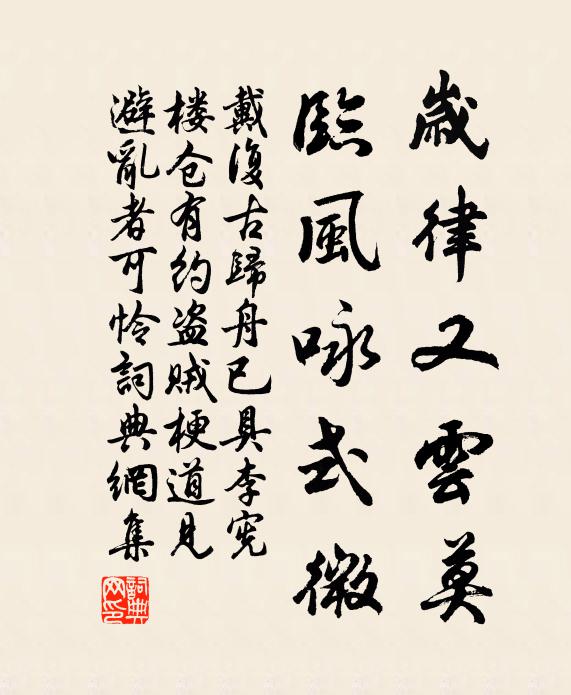 歲律又雲莫
臨風咏式微
戴復古歸舟已具李宪
楼仓有约盗贼梗道見
避亂者可怜詞典網集
詞典网印